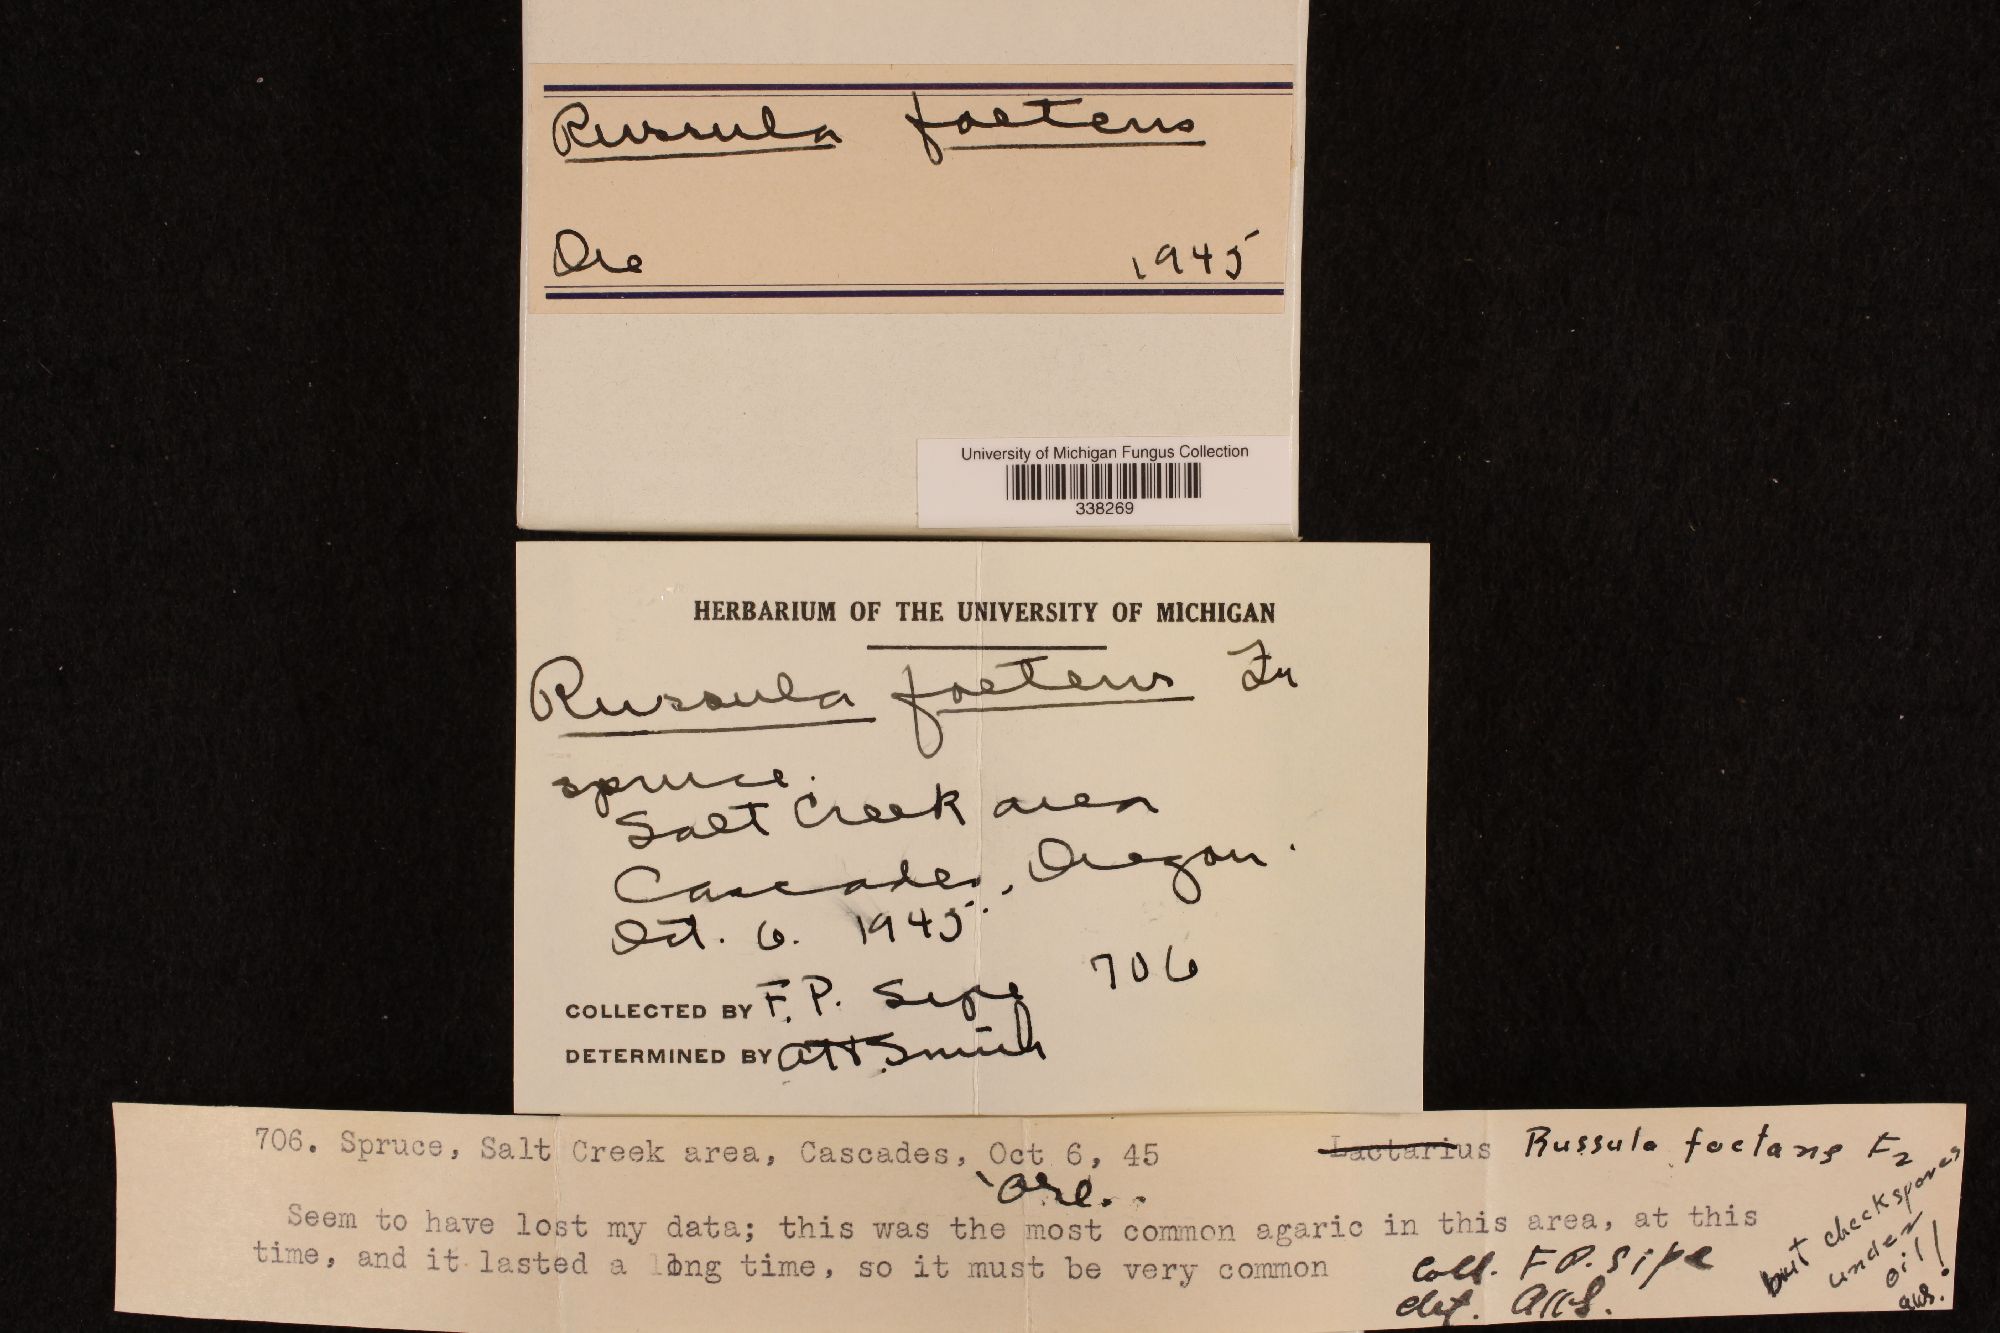 Russula foetens
Ore 1945
University of Michigan Fungus Collection
338269
HERBARIUM OF THE UNIVERSITY OF MICHIGAN
Russula foetens Fr
spruce.
Salt Creek area
Cascades, Oregon.
Oct. 6. 1945.
706
COLLECTED BY F. P. Sipe
DETERMINED BY AH Smith
706. Spruce, Salt Creek area, Cascades, Oct 6, 45 Lactarius Russula foetans Fr
Ore.
Seem to have lost my data; this was the most common agaric in this area, at this
time, and it lasted a long time, so it must be very common
Coll. F P. Sipe
det. AHS.
but check spores
under
oil!